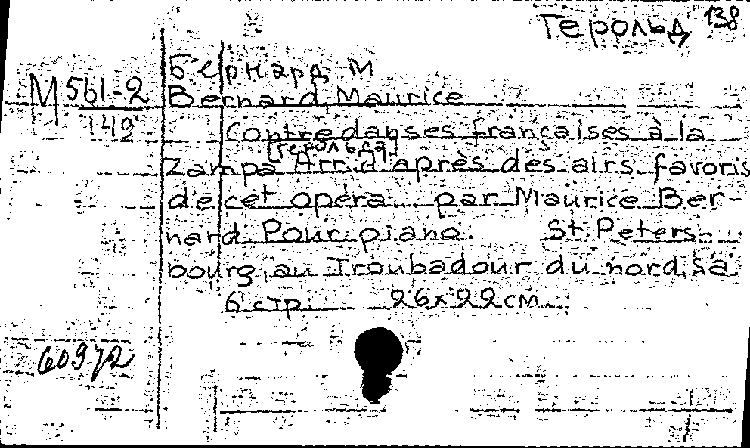 Герольд 138
Бернард М
М 561-2 Bernard, Maurice
149 Contredanses françaises à la
[Герольда]
Zampa Arr. d'après des airs favoris
de cet opera par Maurice Ber-
nard. Pour piano. St. Peters-
bourg, au Troubadour du nord, sa
6 стр. 26x22 см.
60972